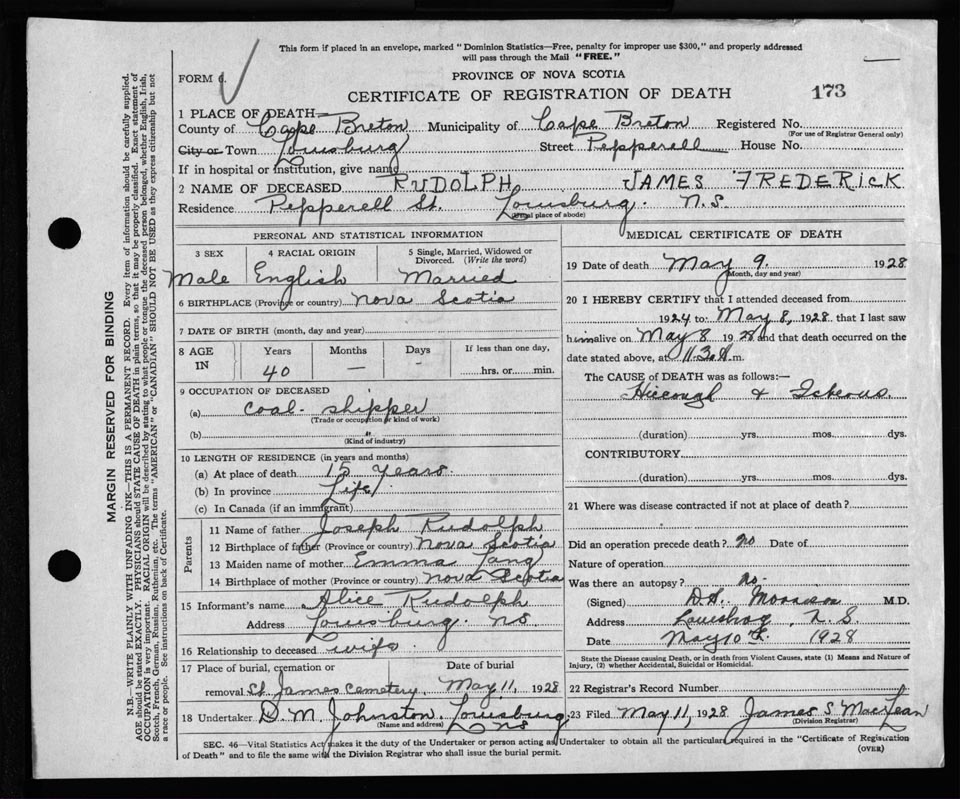 This form if placed in an envelope, marked "Dominion Statistics—Free, penalty for improper use $300," and properly addressed
will pass through the Mail "FREE."
FORM 6.
PROVINCE OF NOVA SCOTIA
CERTIFICATE OF REGISTRATION OF DEATH
173
1 PLACE OF DEATH—
County of Cape Breton Municipality of Cape Breton Registered No.
(For use of Registrar General only)
City or Town Louisburg Street Pepperell House No.
If in hospital or institution, give name
2 NAME OF DECEASED RUDOLPH JAMES FREDERICK
Residence Pepperell St. Louisburg. N.S.
(Usual place of abode)
PERSONAL AND STATISTICAL INFORMATION
3 SEX 4 RACIAL ORIGIN 5 Single, Married, Widowed or Divorced. (Write the word)
Male English Married
6 BIRTHPLACE (Province or country) Nova Scotia
7 DATE OF BIRTH (month, day and year)
8 AGE IN Years Months Days If less than one day,
40 — - hrs. or min.
9 OCCUPATION OF DECEASED
(a) Coal-shipper
(Trade or occupation or kind of work)
(b) "
(Kind of industry)
10 LENGTH OF RESIDENCE (in years and months)
(a) At place of death 15 Years.
(b) In province Life
(c) In Canada (if an immigrant)
Parents
11 Name of father Joseph Rudolph
12 Birthplace of father (Province or country) Nova Scotia
13 Maiden name of mother Emma Tang
14 Birthplace of mother (Province or country) Nova Scotia
15 Informant's name Alice Rudolph
Address Louisburg. NS
16 Relationship to deceased wife
17 Place of burial, cremation or Date of burial
removal St James Cemetery. May 11, 1928
18 Undertaker D. M. Johnston, Louisburg, NS
(Name and address)
MEDICAL CERTIFICATE OF DEATH
19 Date of death May 9. 1928
(Month, day and year)
20 I HEREBY CERTIFY that I attended deceased from
1924 to May 8, 1928 that I last saw
him alive on May 8 1928 and that death occurred on the
date stated above, at 11.30 m.
The CAUSE of DEATH was as follows:—
Hiccough & Icterus.
(duration) yrs. mos. dys.
CONTRIBUTORY
(duration) yrs. mos. dys.
21 Where was disease contracted if not at place of death?
Did an operation precede death? no Date of
Nature of operation
Was there an autopsy? no.
(Signed) M.D.
Address N.S.
Date May 10th 1928
State the Disease causing Death, or in death from Violent Causes, state (1) Means and Nature of
Injury, (2) whether Accidental, Suicidal or Homicidal.
22 Registrar's Record Number
23 Filed May 11, 1928 James S MacLean
(Division Registrar)
SEC. 46—Vital Statistics Act makes it the duty of the Undertaker or person acting as Undertaker to obtain all the particulars required in the "Certificate of Registration
of Death" and to file the same with the Division Registrar who shall issue the burial permit.
(OVER)
MARGIN RESERVED FOR BINDING
N.B.—WRITE PLAINLY WITH UNFADING INK—THIS IS A PERMANENT RECORD. Every item of information should be carefully supplied.
AGE should be stated EXACTLY. PHYSICIANS should STATE CAUSE OF DEATH in plain terms, so that it may be properly classified. Exact statement of
OCCUPATION is very important. RACIAL ORIGIN will be described by stating to what people or tongue the deceased person belonged, whether English, Irish,
Scotch, French, German, Russian, Ruthenian, etc. The terms "AMERICAN" or "CANADIAN" SHOULD NOT BE USED as they express citizenship but not
a race or people. See instructions on back of Certificate.